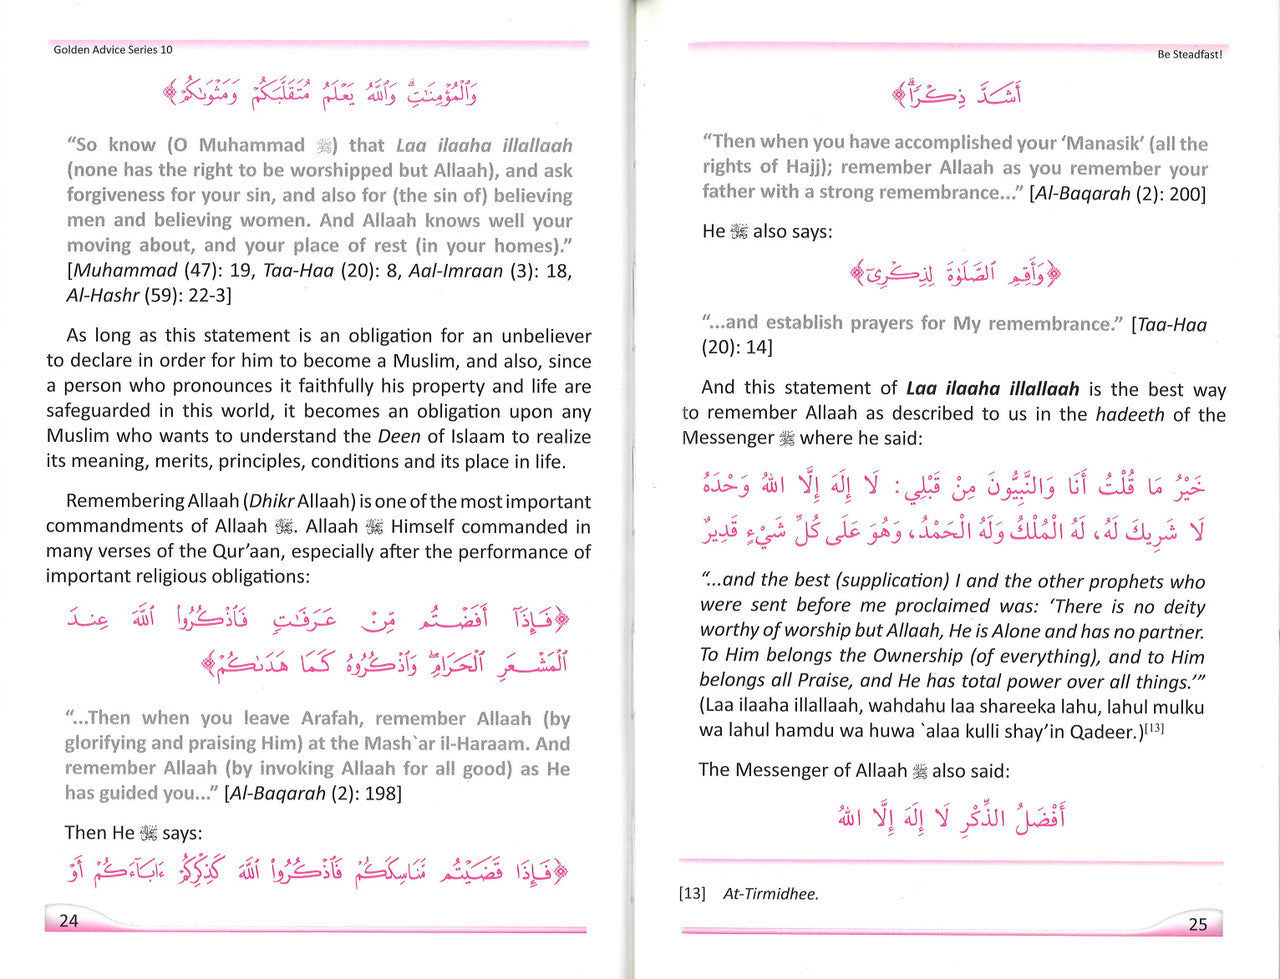 Golden Advice Series 10
وَٱلْمُؤْمِنَٰتِ ۗ وَٱللَّهُ يَعْلَمُ مُتَقَلَّبَكُمْ وَمَثْوَىٰكُمْ ﴾
“So know (O Muhammad ﷺ) that Laa ilaaha illallaah
(none has the right to be worshipped but Allaah), and ask
forgiveness for your sin, and also for (the sin of) believing
men and believing women. And Allaah knows well your
moving about, and your place of rest (in your homes).”
[Muhammad (47): 19, Taa-Haa (20): 8, Aal-Imraan (3): 18,
Al-Hashr (59): 22-3]
As long as this statement is an obligation for an unbeliever
to declare in order for him to become a Muslim, and also, since
a person who pronounces it faithfully his property and life are
safeguarded in this world, it becomes an obligation upon any
Muslim who wants to understand the Deen of Islaam to realize
its meaning, merits, principles, conditions and its place in life.
Remembering Allaah (Dhikr Allaah) is one of the most important
commandments of Allaah. Allaah Himself commanded in
many verses of the Qur’aan, especially after the performance of
important religious obligations:
﴿ فَإِذَآ أَفَضْتُم مِّنْ عَرَفَٰتٍ فَٱذْكُرُوا۟ ٱللَّهَ عِندَ
ٱلْمَشْعَرِ ٱلْحَرَامِ ۖ وَٱذْكُرُوهُ كَمَا هَدَىٰكُمْ ﴾
“...Then when you leave Arafah, remember Allaah (by
glorifying and praising Him) at the Mash`ar il-Haraam. And
remember Allaah (by invoking Allaah for all good) as He
has guided you...” [Al-Baqarah (2): 198]
Then He says:
﴿ فَإِذَا قَضَيْتُم مَّنَاسِكَكُمْ فَٱذْكُرُوا۟ ٱللَّهَ كَذِكْرِكُمْ ءَابَآءَكُمْ أَوْ
24
Be Steadfast!
أَشَدَّ ذِكْرًا ۗ ﴾
“Then when you have accomplished your ‘Manasik’ (all the
rights of Hajj); remember Allaah as you remember your
father with a strong remembrance...” [Al-Baqarah (2): 200]
He also says:
﴿ وَأَقِمِ ٱلصَّلَوٰةَ لِذِكْرِىٓ ﴾
“...and establish prayers for My remembrance.” [Taa-Haa
(20): 14]
And this statement of Laa ilaaha illallaah is the best way
to remember Allaah as described to us in the hadeeth of the
Messenger ﷺ where he said:
خَيْرُ مَا قُلْتُ أَنَا وَالنَّبِيُّونَ مِنْ قَبْلِي: لَا إِلَهَ إِلَّا اللهُ وَحْدَهُ
لَا شَرِيكَ لَهُ، لَهُ الْمُلْكُ وَلَهُ الْحَمْدُ، وَهُوَ عَلَى كُلِّ شَيْءٍ قَدِيرٌ
“...and the best (supplication) I and the other prophets who
were sent before me proclaimed was: ‘There is no deity
worthy of worship but Allaah, He is Alone and has no partner.
To Him belongs the Ownership (of everything), and to Him
belongs all Praise, and He has total power over all things.’”
(Laa ilaaha illallaah, wahdahu laa shareeka lahu, lahul mulku
wa lahul hamdu wa huwa `alaa kulli shay’in Qadeer.)[13]
The Messenger of Allaah ﷺ also said:
أَفْضَلُ الذِّكْرِ لَا إِلَهَ إِلَّا اللهُ
[13] At-Tirmidhee.
25